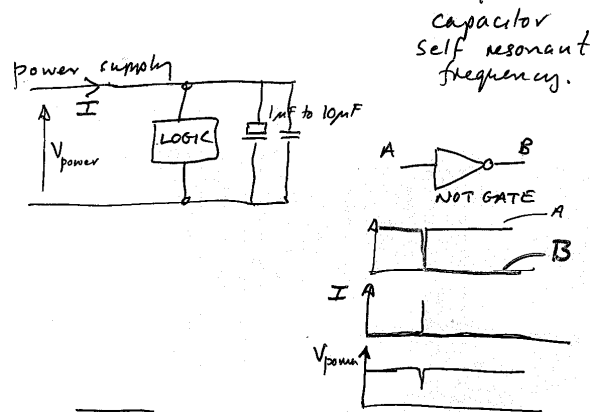 capacitor
self resonant
frequency.
power supply
I
1µF to 10µF
LOGIC
Vpower
A
B
NOT GATE
A
B
I
Vpower